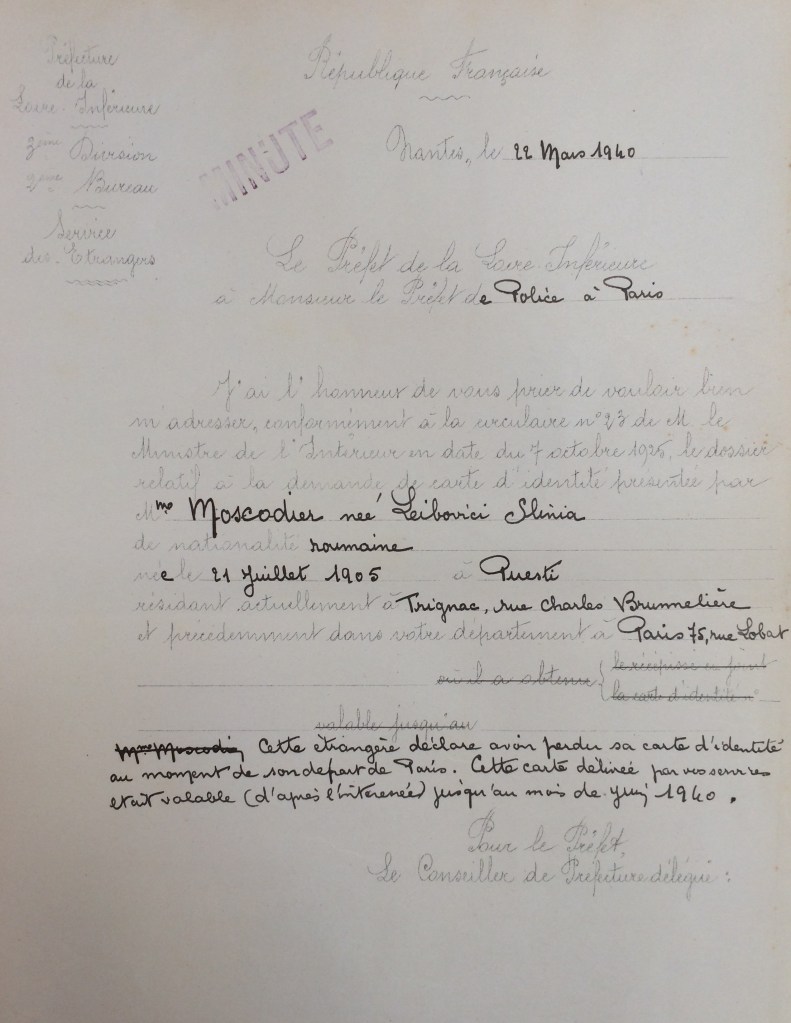 Préfecture
de la
Loire-Inférieure
3ème Division
2ème Bureau
Service
des Etrangers
République Française
MINUTE
Nantes, le 22 Mars 1940
Le Préfet de la Loire-Inférieure
à Monsieur le Préfet de Police à Paris
J'ai l'honneur de vous prier de vouloir bien
m'adresser, conformément à la circulaire n° 23 de M. le
Ministre de l'Intérieur en date du 7 octobre 1925, le dossier
relatif à la demande de carte d'identité présentée par
Mme Moscodier neé Leibovici Slinia
de nationalité roumaine
née le 21 Juillet 1905 à Puesti
résidant actuellement à Trignac, rue Charles Brunnelière
et précédemment dans votre département à Paris 75, rue Lobat
où il a obtenu { le récépissé ci-joint
la carte d'identité n°
valable jusqu'au
Mme Moscodi Cette étrangère déclare avoir perdu sa carte d'identité
au moment de son depart de Paris. Cette carte délivrée par vos services
etait valable (d'après l'intéressée) jusqu'au mois de Juin 1940.
Pour le Préfet,
Le Conseiller de Préfecture délégué :